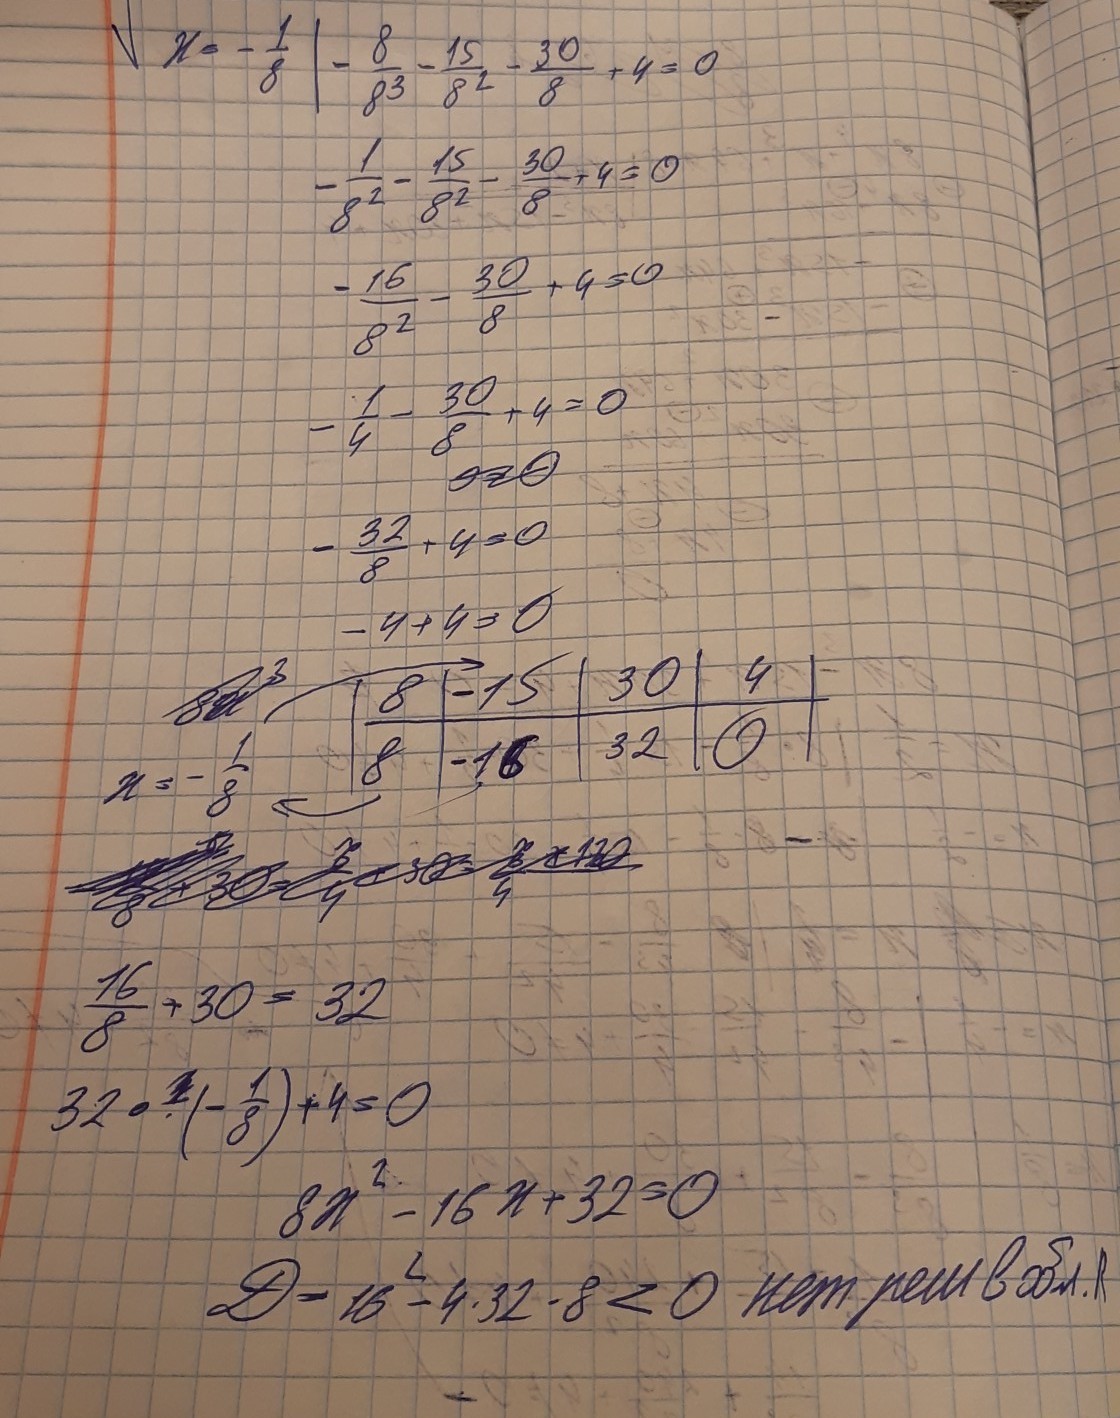 x = -1/8 | -8/8³ - 15/8² - 30/8 + 4 = 0
-1/8² - 15/8² - 30/8 + 4 = 0
-16/8² - 30/8 + 4 = 0
-1/4 - 30/8 + 4 = 0
-32/8 + 4 = 0
-4 + 4 = 0
8x³
| 8 | -15 | 30 | 4 |
x = -1/8 | 8 | -16 | 32 | 0 |
16/8 + 30 = 32
32 · (-1/8) + 4 = 0
8x² - 16x + 32 = 0
D = 16² - 4·32·8 < 0 нет реш в обл. R